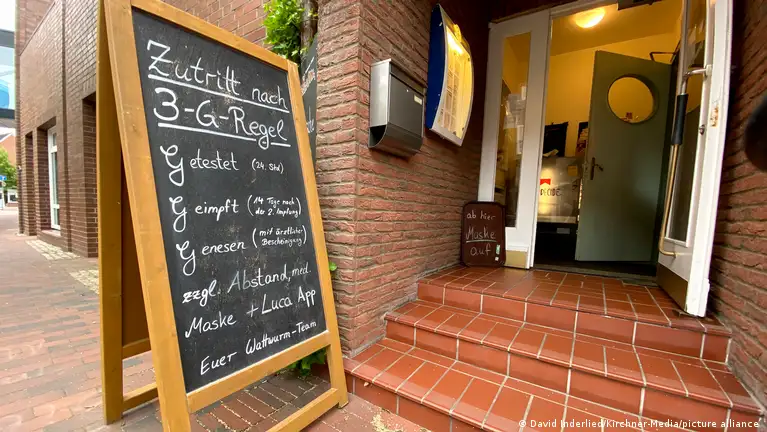 Zutritt nach
3-G-Regel
Getestet (24. Std)
Geimpft (14 Tage nach
der 2. Impfung)
Genesen (mit ärztlicher
Bescheinigung)
zzgl. Abstand, med.
Maske + Luca App
Euer Wattwurm-Team
ab hier
Maske
auf
© David Inderlied/Kirchner-Media/picture alliance